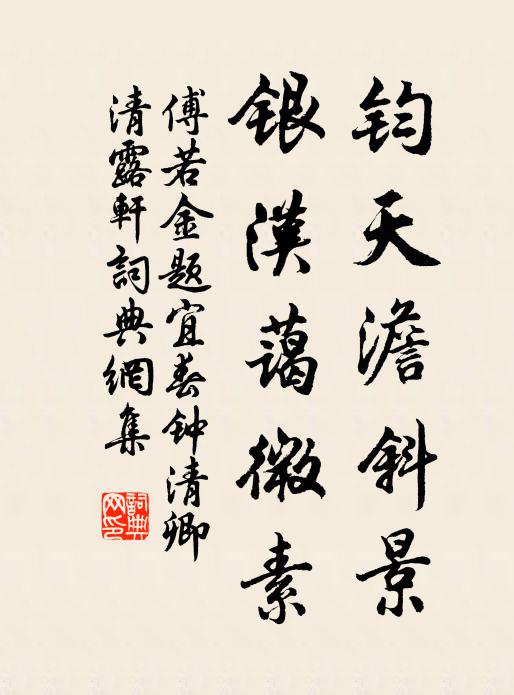 钧天澹斜景
银漢蔼微素
傅若金题宜春钟清卿
清露軒詞典網集
詞典网印